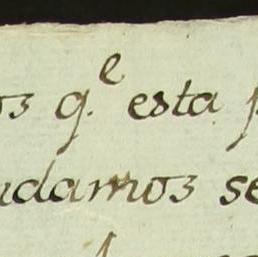 os q.e esta
damos se